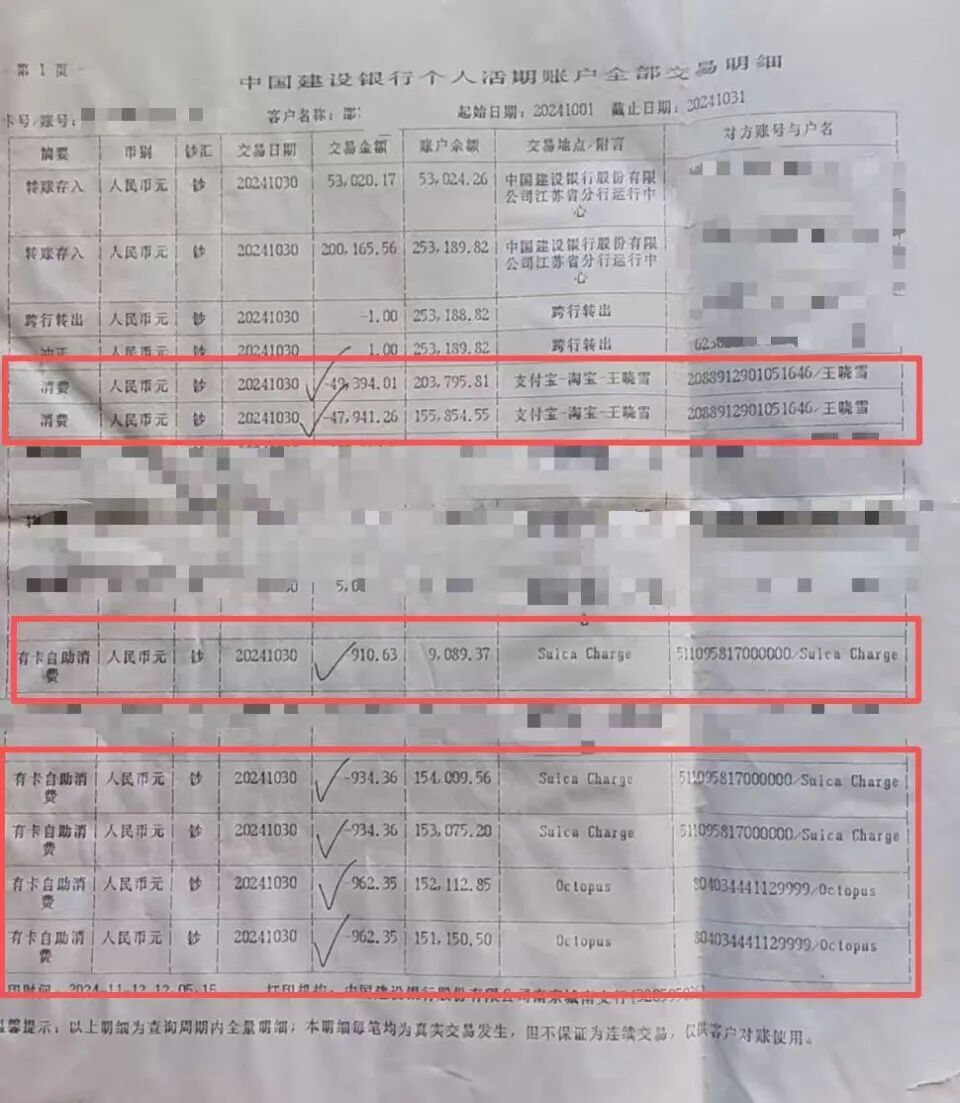 第 1 页
中国建设银行个人活期账户全部交易明细
卡号/账号: 客户名称: 邵 起始日期: 20241001 截止日期: 20241031
摘要 币别 钞汇 交易日期 交易金额 账户余额 交易地点/附言 对方账号与户名
转账存入 人民币元 钞 20241030 53,020.17 53,024.26 中国建设银行股份有限
公司江苏省分行运行中
心
转账存入 人民币元 钞 20241030 200,165.56 253,189.82 中国建设银行股份有限
公司江苏省分行运行中
心
跨行转出 人民币元 钞 20241030 -1.00 253,188.82 跨行转出
冲正 人民币元 钞 20241030 1.00 253,189.82 跨行转出
消费 人民币元 钞 20241030 -49,394.01 203,795.81 支付宝-淘宝-王晓雪 2088912901051646/王晓雪
消费 人民币元 钞 20241030 -47,941.26 155,854.55 支付宝-淘宝-王晓雪 2088912901051646/王晓雪
有卡自助消 人民币元 钞 20241030 -910.63 9,089.37 Suica Charge 511095817000000/Suica Charge
费
有卡自助消 人民币元 钞 20241030 -934.36 154,009.56 Suica Charge 511095817000000/Suica Charge
费
有卡自助消 人民币元 钞 20241030 -934.36 153,075.20 Suica Charge 511095817000000/Suica Charge
费
有卡自助消 人民币元 钞 20241030 -962.35 152,112.85 Octopus 804034441129999/Octopus
费
有卡自助消 人民币元 钞 20241030 -962.35 151,150.50 Octopus 804034441129999/Octopus
费
印时间: 2024-11-12 12:05:15 打印机构: 中国建设银行股份有限公司南京城南支行
温馨提示: 以上明细为查询周期内全量明细; 本明细每笔均为真实交易发生, 但不保证为连续交易, 仅供客户对账使用。